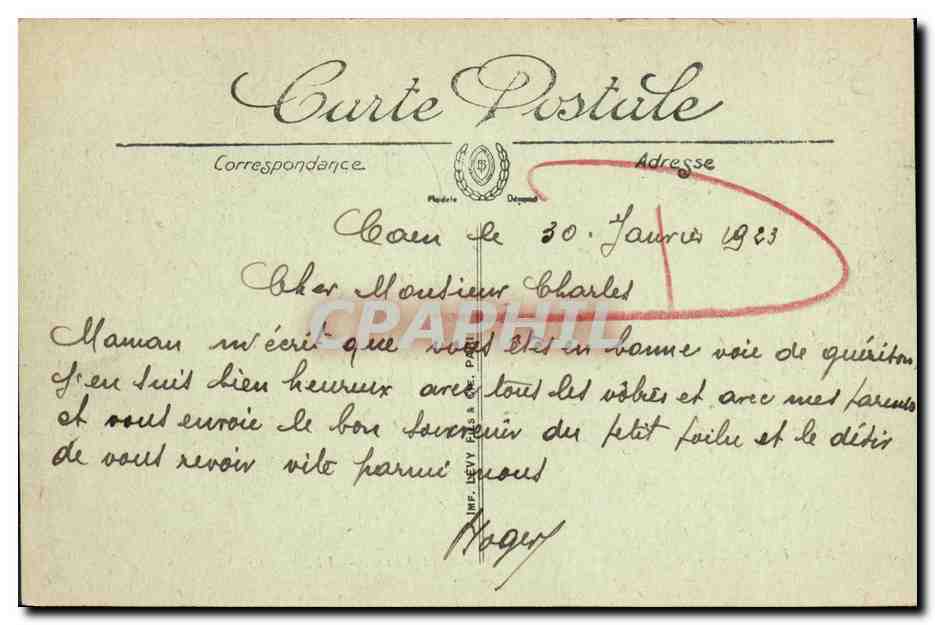 Carte Postale
Correspondance
Adresse
Modèle Déposé
Caen le 30. Janvier 1923
Cher Monsieur Charles
CPAPHIL
Maman m'écrit que vous êtes en bonne voie de guérison,
J'en suis bien heureux avec tous les vôtres et avec mes parents
et vous envoie le bon souvenir du petit poilu et le désir
de vous revoir vite parmi nous
Roger
IMP. LEVY FILS & CIE. PARIS